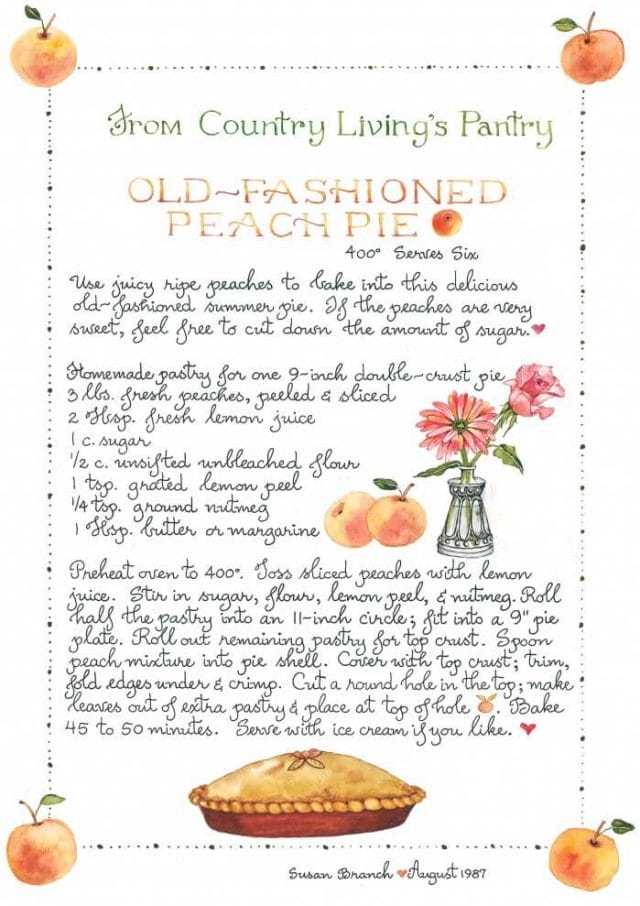 From Country Living's Pantry
OLD~FASHIONED
PEACH PIE
400° Serves Six
Use juicy ripe peaches to bake into this delicious
old-fashioned summer pie. If the peaches are very
sweet, feel free to cut down the amount of sugar.
Homemade pastry for one 9-inch double-crust pie
3 lbs. fresh peaches, peeled & sliced
2 Tbsp. fresh lemon juice
1 c. sugar
1/2 c. unsifted unbleached flour
1 tsp. grated lemon peel
1/4 tsp. ground nutmeg
1 Tbsp. butter or margarine
Preheat oven to 400°. Toss sliced peaches with lemon
juice. Stir in sugar, flour, lemon peel, & nutmeg. Roll
half the pastry into an 11-inch circle; fit into a 9" pie
plate. Roll out remaining pastry for top crust. Spoon
peach mixture into pie shell. Cover with top crust; trim,
fold edges under & crimp. Cut a round hole in the top; make
leaves out of extra pastry & place at top of hole. Bake
45 to 50 minutes. Serve with ice cream if you like.
Susan Branch ♥ August 1987